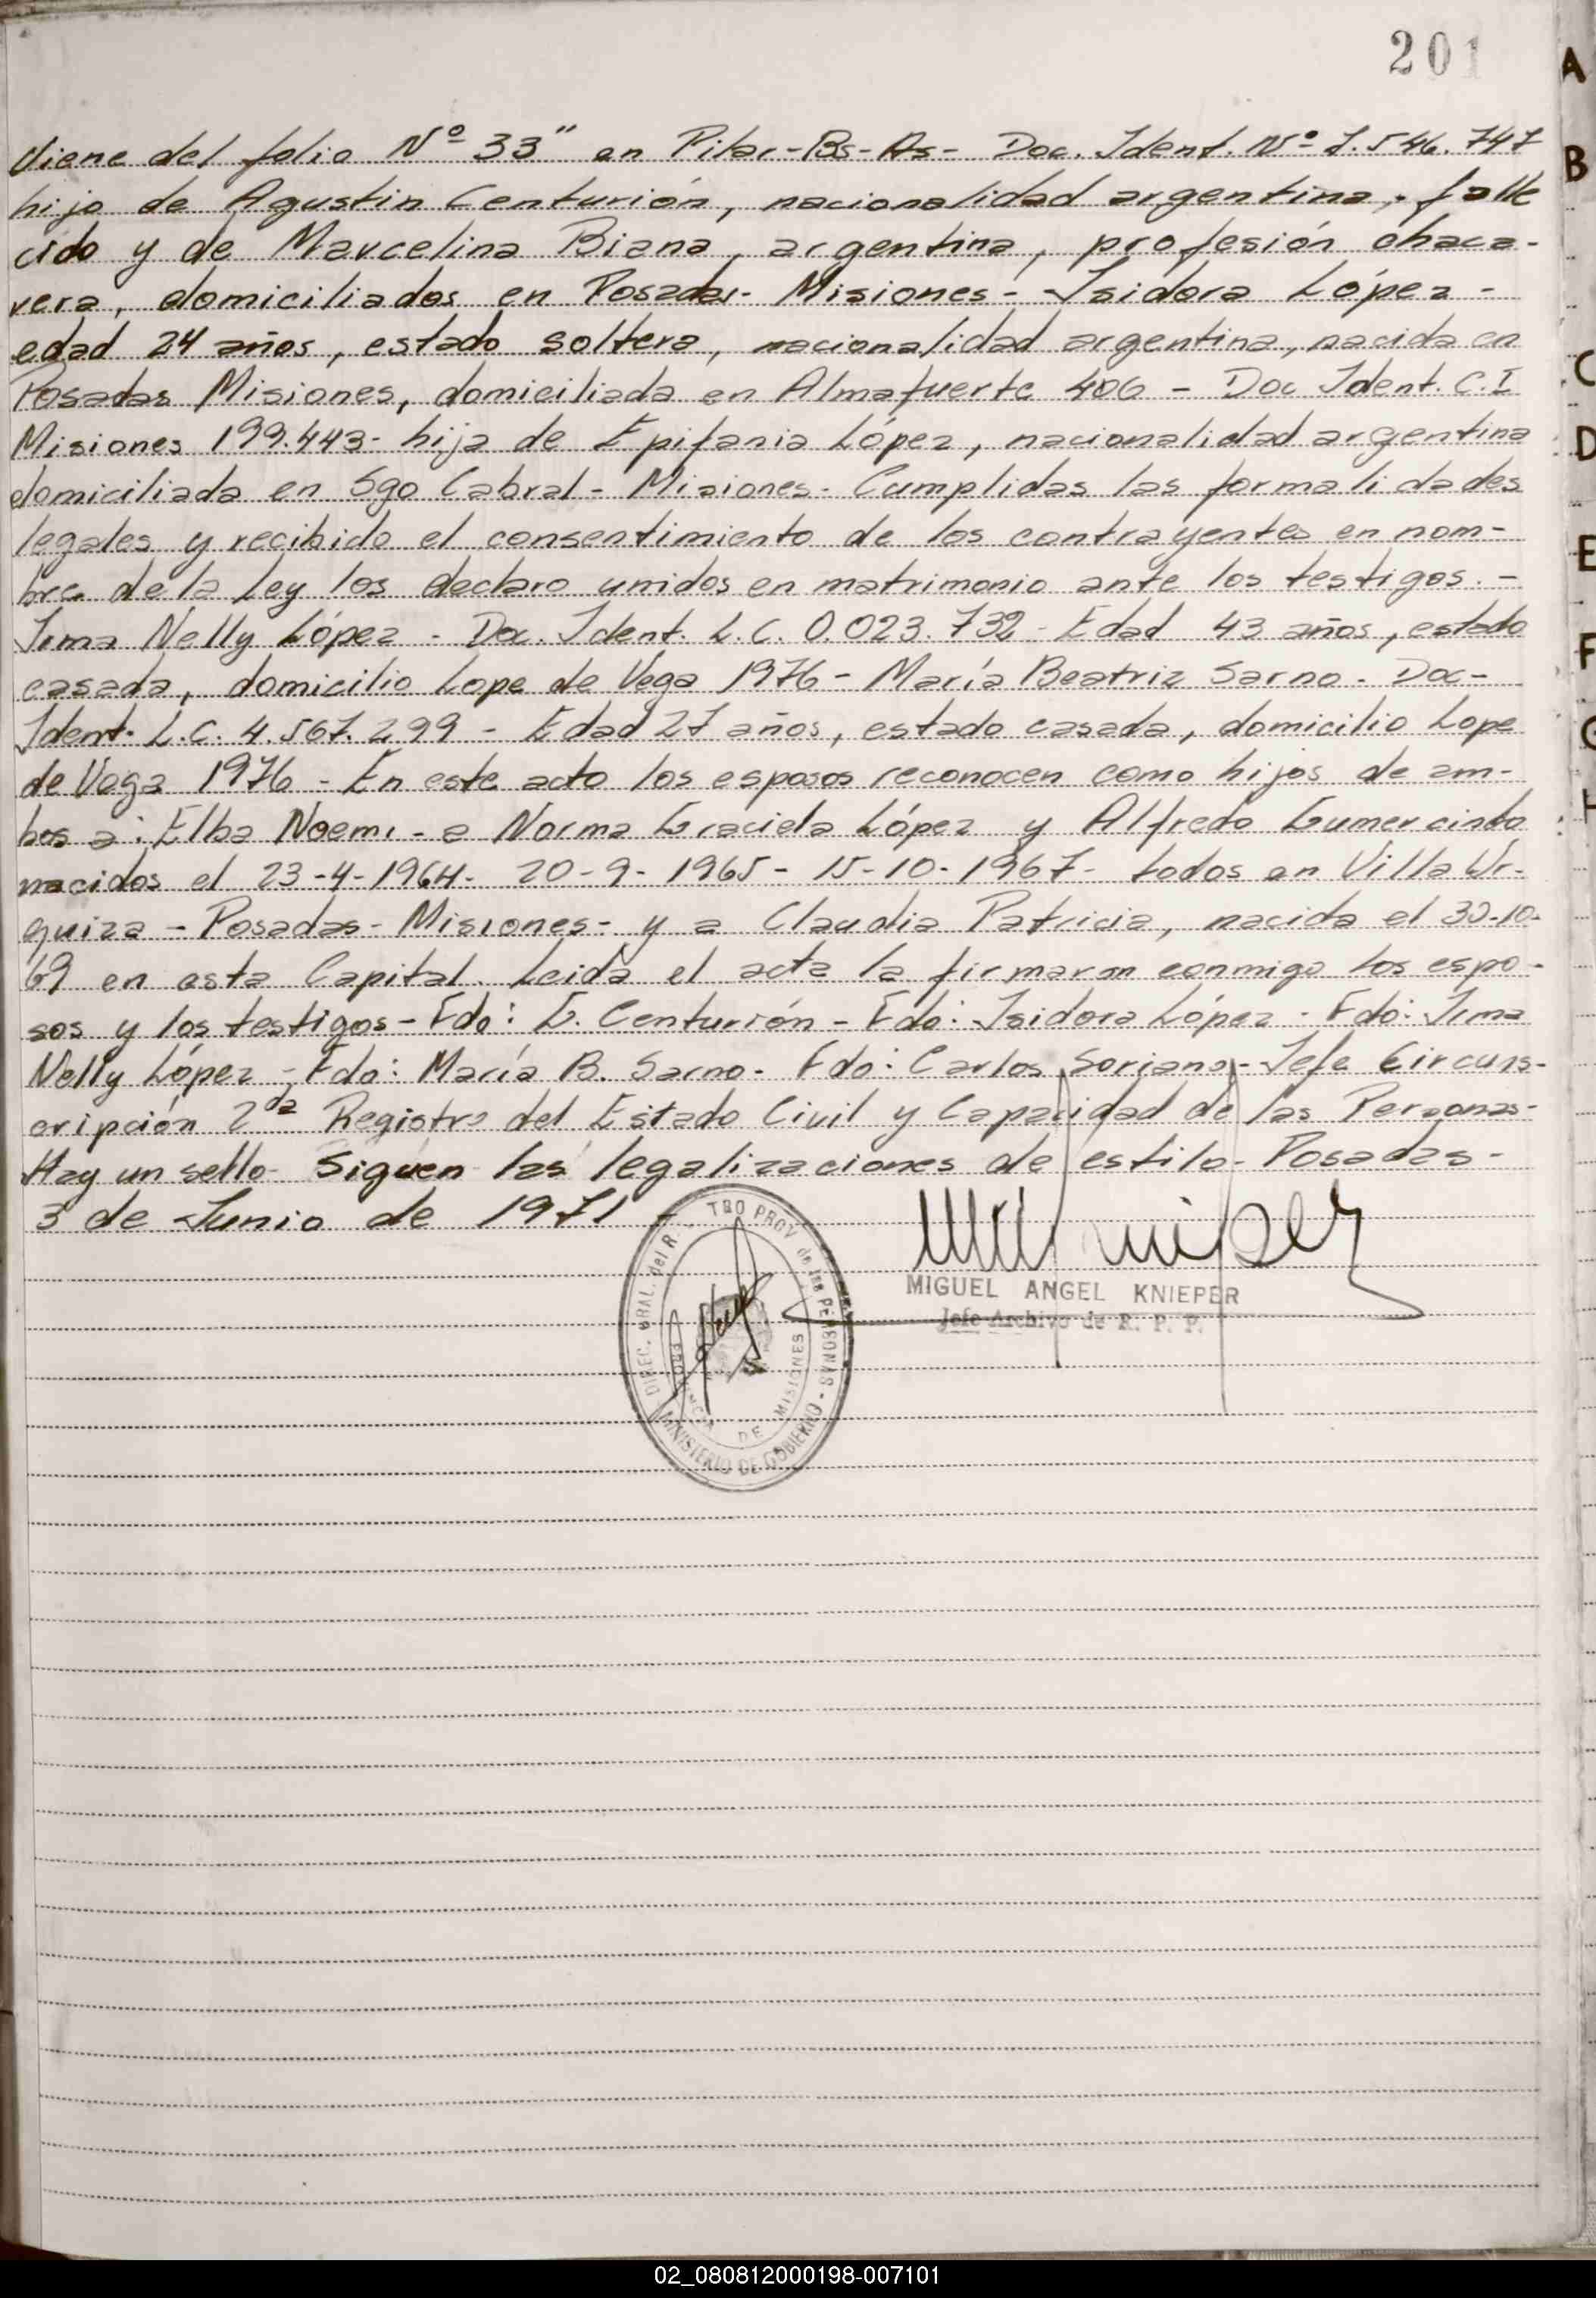 201
Viene del folio Nº 33" en Pilar-Bs-As- Doc. Ident. Nº 7.546.747
hijo de Agustin Centurión, nacionalidad argentina, falle
cido y de Marcelina Biana, argentina, profesión chaca-
rera, domiciliados en Posadas- Misiones- Isidora López-
edad 24 años, estado soltera, nacionalidad argentina, nacida en
Posadas Misiones, domiciliada en Almafuerte 406 - Doc Ident. C.I
Misiones 199.443- hija de Epifania López, nacionalidad argentina
domiciliada en Sgo Cabral- Misiones- Cumplidas las formalidades
legales y recibido el consentimiento de los contrayentes en nom-
bre de la Ley los declaro unidos en matrimonio ante los testigos.-
Irma Nelly López - Doc. Ident. L.C. 0.023.732- Edad 43 años, estado
casada, domicilio Lope de Vega 1976- María Beatriz Sarno- Doc-
Ident- L.C. 4.567.299 - Edad 27 años, estado casada, domicilio Lope
de Vega 1976 - En este acto los esposos reconocen como hijos de am-
bos a: Elba Noemi- a Norma Graciela López y Alfredo Gumercindo
nacidos el 23-4-1964- 20-9-1965- 15-10-1967- todos en Villa Ur-
quiza - Posadas- Misiones- y a Claudia Patricia, nacida el 30-10-
69 en esta Capital. Leida el acta la firmaron conmigo los espo-
sos y los testigos- Fdo: G. Centurión- Fdo: Isidora López- Fdo: Irma
Nelly López- Fdo: María B. Sarno- Fdo: Carlos Soriano- Jefe Circuns-
cripción 2da Registro del Estado Civil y Capacidad de las Personas-
Hay un sello- Siguen las legalizaciones de estilo- Posadas-
3 de Junio de 1971-
DIREC. GRAL. del R. TRO PROV de las PERSONAS - MINISTERIO DE GOBIERNO
PROVINCIA DE MISIONES
MIGUEL ANGEL KNIEPER
Jefe Archivo de R. P. P.
A
B
C
D
E
F
G
H
02_080812000198-007101